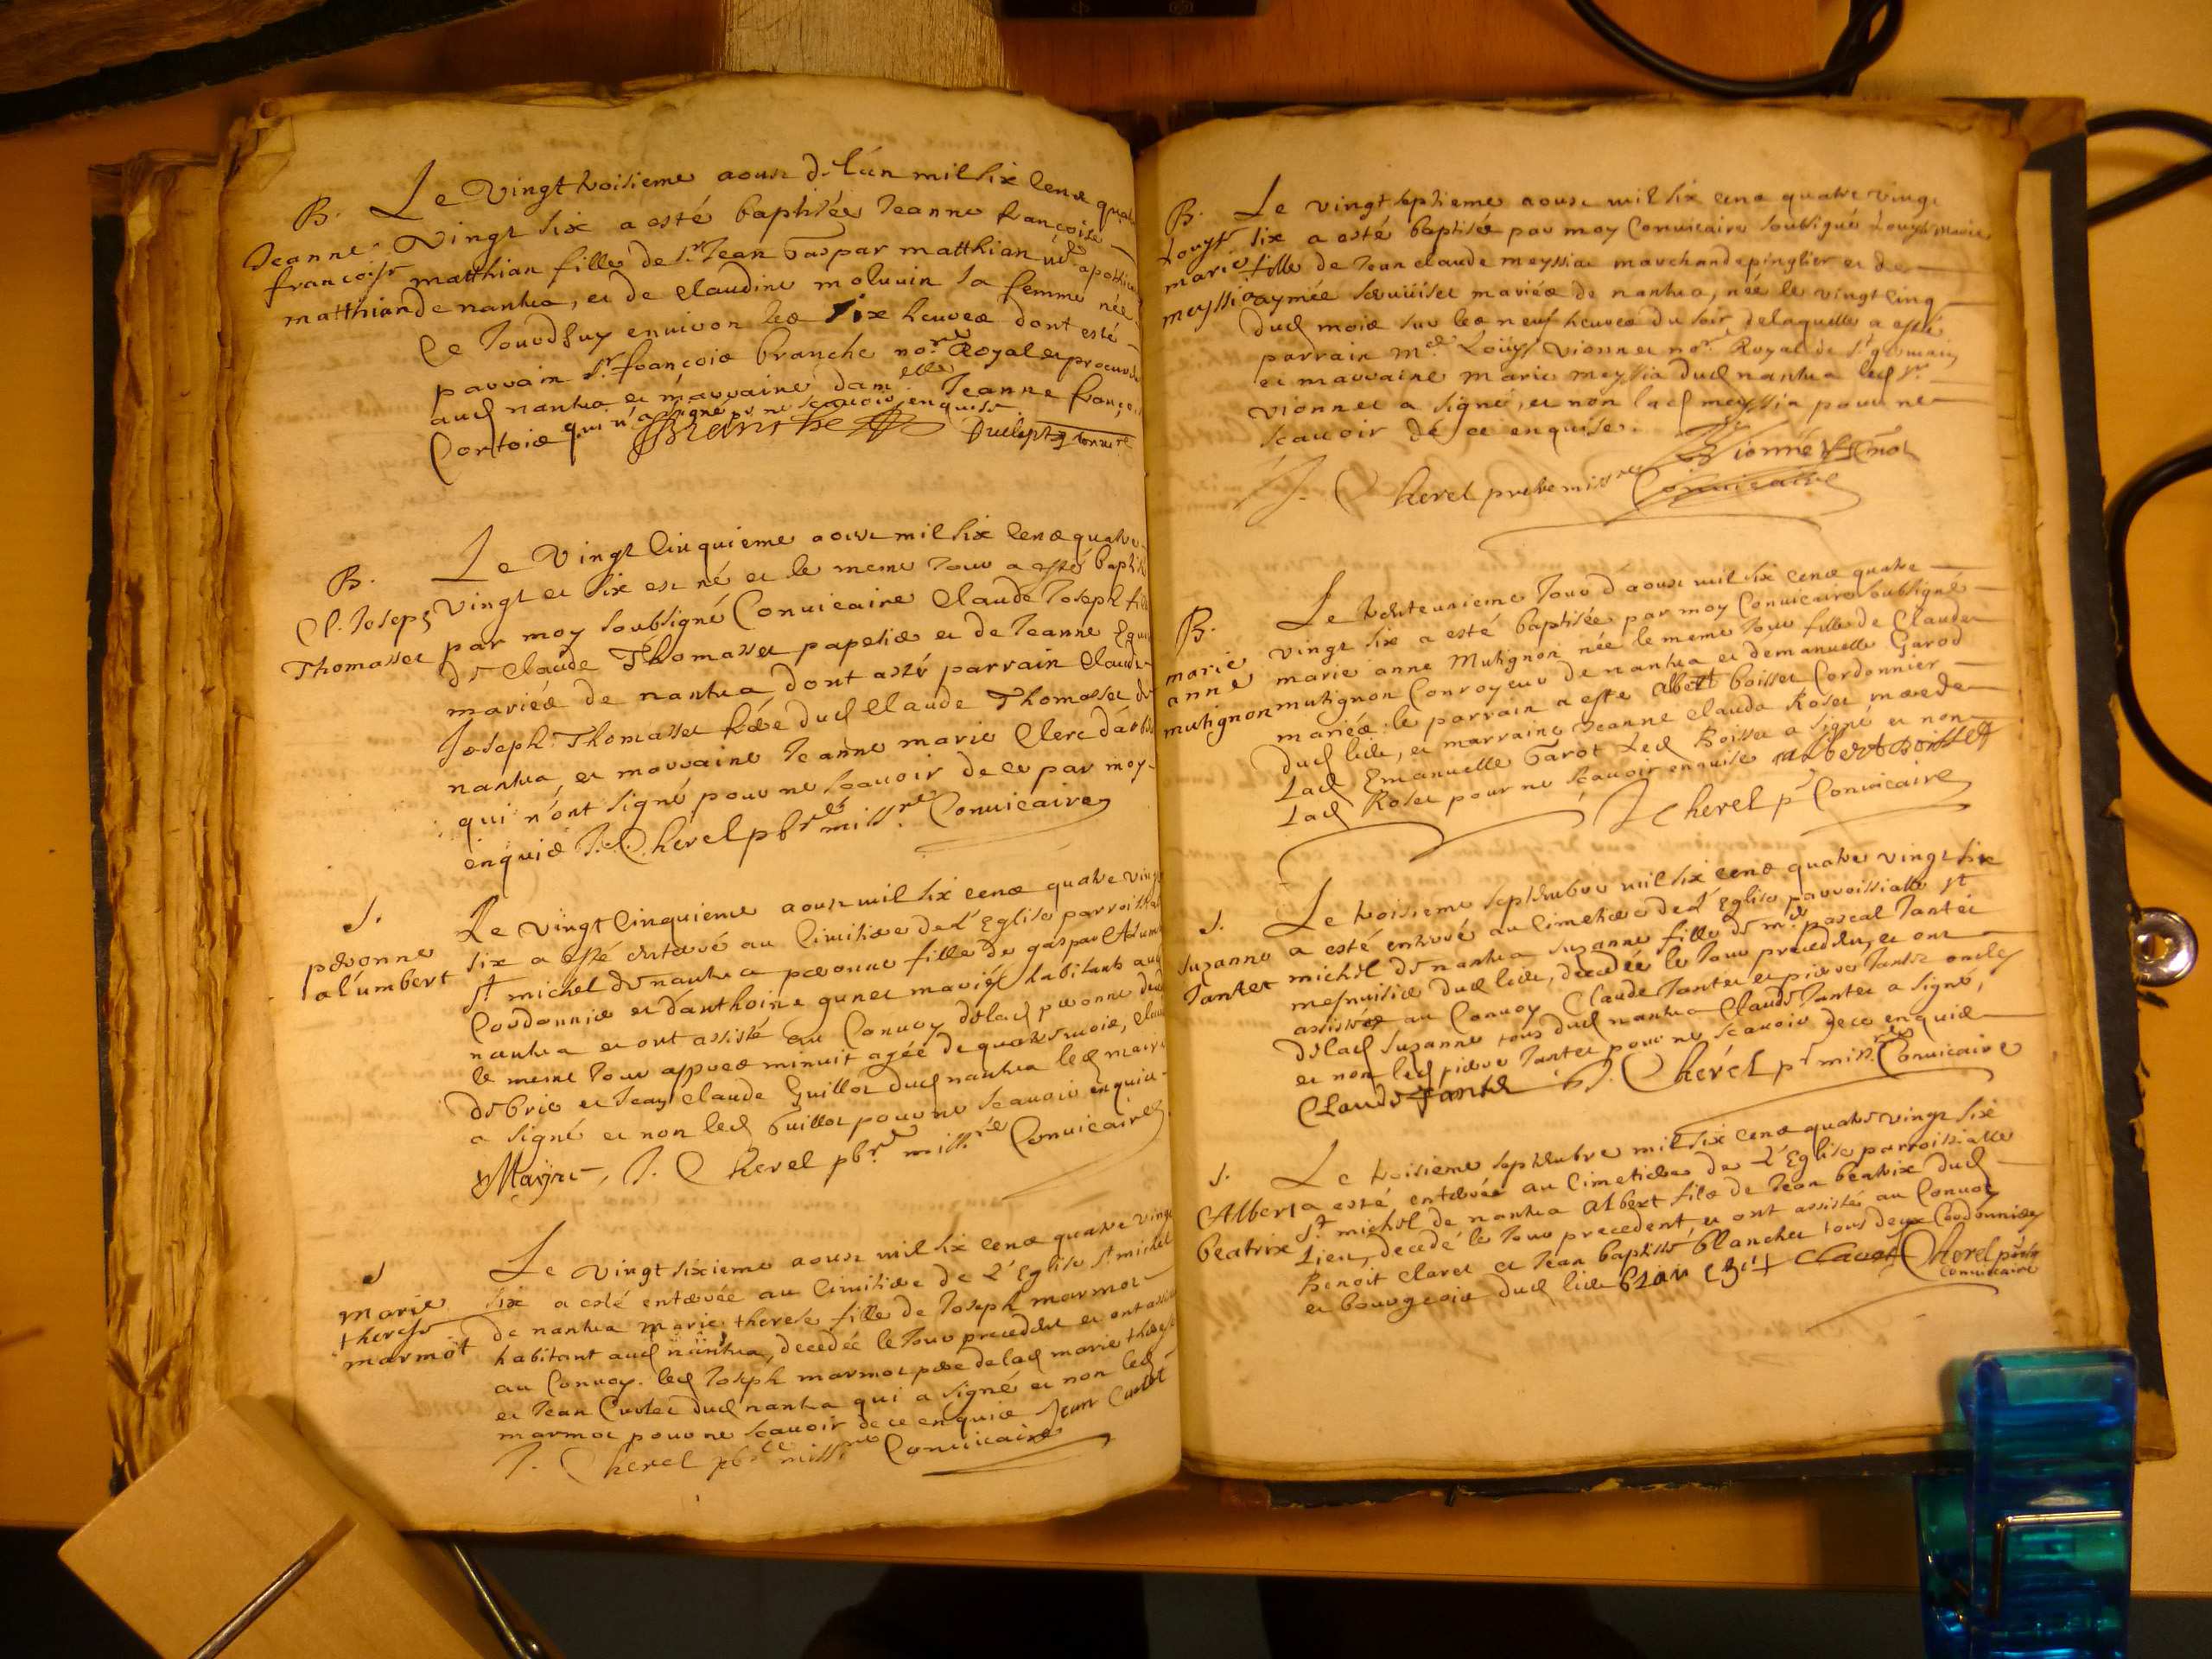 B.
Jeanne
françoise
matthian
Le Vingt troisieme aoust de l'an mil six cens quatre
Vingt six a esté baptisée Jeanne françoise
matthian fille de sr Jean Gaspar matthian md apothic
de nantua, et de claudine moluuin sa femme née
Ce Jourdhuy enuiron les six heures dont esté
parrain sr françois branche nore Royal et procureur
aud nantua et marraine damelle Jeanne franço
Cortois qui n'a signé pr ne scauoir enquise
Branche
B.
Cl. Joseph
Thomasset
Le Vingt Cinquieme aoust mil six cens quatre
vingt et six est né et le meme Jour a esté baptis
par moy soubsigné Conuicaire Claude Joseph fils
de Claude Thomasset papetier et de Jeanne
mariés de nantua dont a esté parrain Claude
Joseph Thomasset frere dud Claude Thomasset de
nantua, et marraine Jeanne marie Clerc
qui n'ont signé pour ne scauoir de ce par moy
enquis J. Cherel pbre missre Conuicaire
S.
peronne
alumbert
Le vingt Cinquieme aoust mil six cens quatre vingt
six a esté enterré au Cimitiere de l'Eglise parroissia
st michel de nantua peronne fille de gaspar Alum
Cordonnier et d'anthoine gunet mariés habitants aud
nantua et ont assisté au Conuoy de lad peronne
le meme Jour appres minuit agée de quatre mois, Clau
de brie et Jean Claude Guillot dud nantua led maire
a signé et non led Guillot pour ne scauoir enquis
Mayre, J. Cherel pbre missre Conuicaire
S
marie
therese
marmot
Le vingt sixieme aoust mil six cens quatre vingt
six a esté enterrée au Cimitiere de l'Eglise st michel
de nantua marie therese fille de Joseph marmot
habitant aud nantua, decedée le Jour precedent et ont assis
au Conuoy led Joseph marmot pere de lad marie therese
et Jean Curtet dud nantua qui a signé et non led
marmot pour ne scauoir de ce enquis Jean Curtet
J. Cherel pbre missre Conuicaire
B.
Louyse
marie
meyssia
Le vingt septieme aoust mil six cens quatre vingt
six a esté baptisée par moy Conuicaire soubsigné Louyse marie
fille de Jean claude meyssia marchand epinglier et de
aymée mariés de nantua, née le vingt cinq
dud mois sur les neuf heures du soir, de laquelle a esté
parrain me Loüys vionnet nore Royal de st germain
et marraine marie meyssia dud nantua led sr
vionnet a signé, et non lad meyssia pour ne
scauoir de ce enquise.
Vionnet
J. Cherel prebre missre Conuicaire
B.
marie
anne
mutignon
Le trenteunieme Jour d'aoust mil six cens quatre
vingt six a esté baptisée par moy Conuicaire soubsigné
marie anne Mutignon née le meme Jour fille de Claude
mutignon Conroyeur de nantua et demanuelle Garod
mariés: le parrain a esté Albert boisset Cordonnier
dud lieu, et marraine Jeanne Claude Roset
Lad Emanuelle Garot Led Boisset a signé et non
Lad Roset pour ne scauoir enquise albert boisset
J Cherel pr Conuicaire
S.
Suzanne
Jantet
Le troisieme septembre mil six cens quatre vingt six
a esté enterré au Cimetiere de l'Eglise parroissialle st
michel de nantua Suzanne fille de me pascal Jantet
mesnuisier dud lieu, decedée le Jour precedent, et ont
assistés au Conuoy Claude Jantet et pierre Jantet oncles
de lad Suzanne tous dud nantua Claude Jantet a signé,
et non led pierre Jantet pour ne scauoir de ce enquis
Claude Jantet J. Cherel pr missre Conuicaire
S.
Albert
beatrix
Le troisieme septembre mil six cens quatre vingt six
a esté enterrée au Cimetiere de l'Eglise parroissialle
st michel de nantua Albert fils de Jean beatrix dud
Lieu, decedé le Jour precedent et ont assisté au Conuoy
Benoit Claret et Jean baptiste blanchet tous deux Cordonniers
et bourgeois dud lieu Claret Cherel prbre
Conuicaire